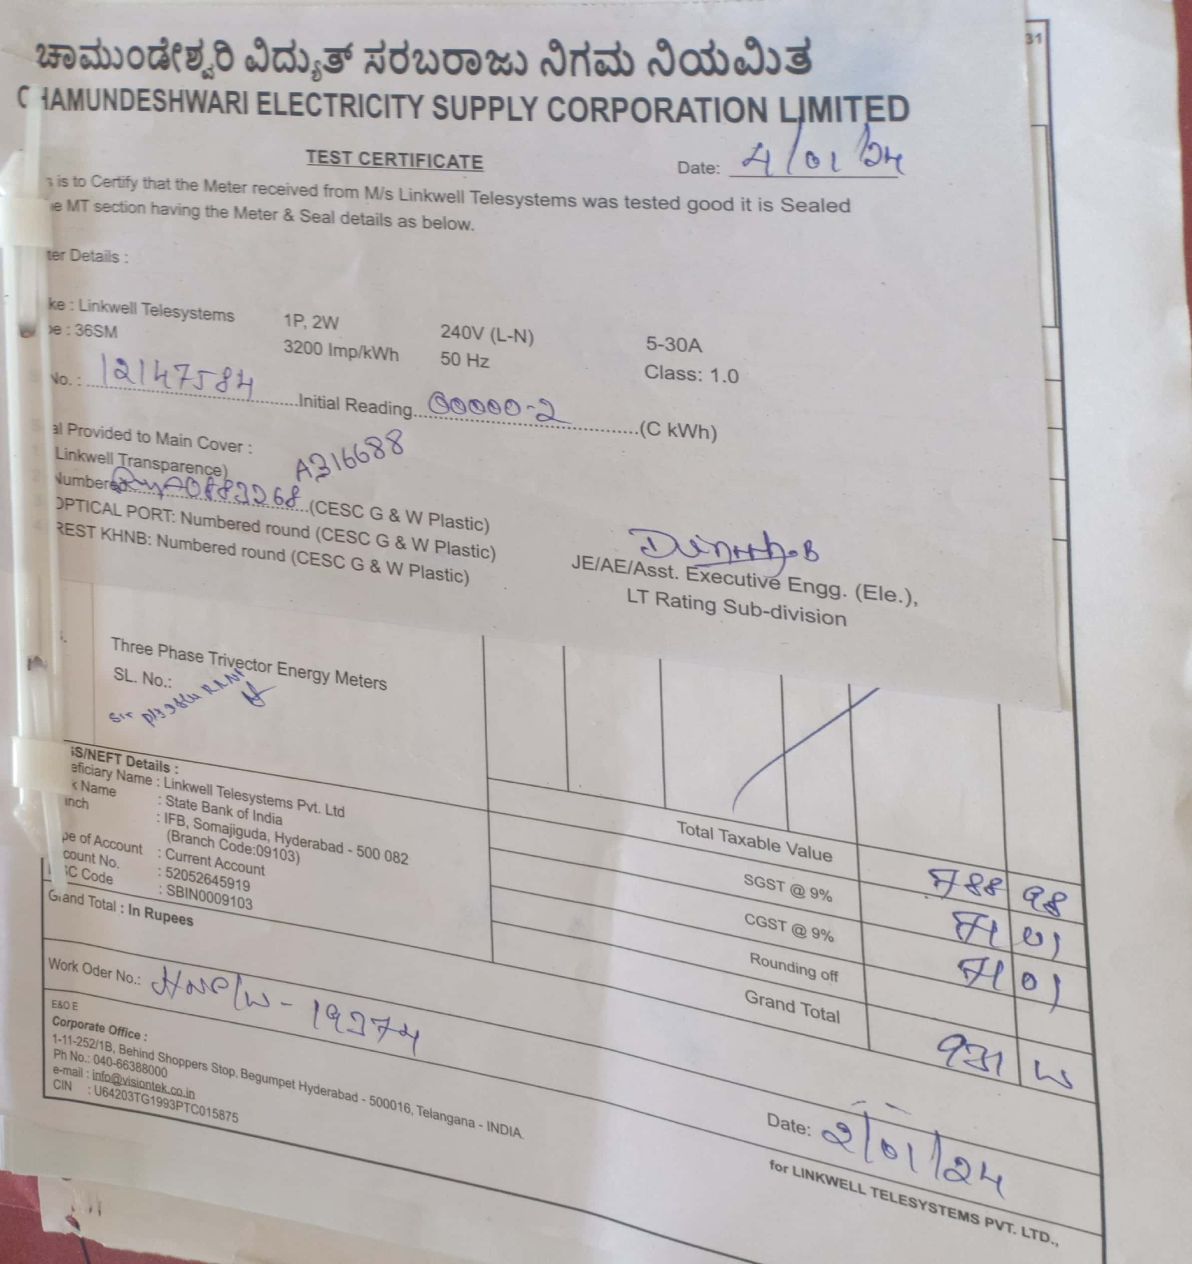 31
ಚಾಮುಂಡೇಶ್ವರಿ ವಿದ್ಯುತ್ ಸರಬರಾಜು ನಿಗಮ ನಿಯಮಿತ
CHAMUNDESHWARI ELECTRICITY SUPPLY CORPORATION LIMITED
TEST CERTIFICATE
Date: 4/01/24
is to Certify that the Meter received from M/s Linkwell Telesystems was tested good it is Sealed
MT section having the Meter & Seal details as below.
ter Details :
ke : Linkwell Telesystems 1P, 2W 240V (L-N) 5-30A
pe : 36SM 3200 Imp/kWh 50 Hz Class: 1.0
No. : 12147584 Initial Reading 00000-2 (C kWh)
al Provided to Main Cover :
Linkwell Transparence) A316688
Numbered 0883268 (CESC G & W Plastic)
OPTICAL PORT: Numbered round (CESC G & W Plastic)
REST KHNB: Numbered round (CESC G & W Plastic)
JE/AE/Asst. Executive Engg. (Ele.),
LT Rating Sub-division
Three Phase Trivector Energy Meters
SL. No.:
GS/NEFT Details :
eficiary Name : Linkwell Telesystems Pvt. Ltd
k Name : State Bank of India
anch : IFB, Somajiguda, Hyderabad - 500 082
(Branch Code:09103)
pe of Account : Current Account
count No. : 52052645919
SC Code : SBIN0009103
Total Taxable Value 788 98
SGST @ 9% 71 01
CGST @ 9% 71 01
Rounding off
Grand Total 931 00
Grand Total : In Rupees
Work Oder No.: 19374
E&O.E
Corporate Office :
1-11-252/1B, Behind Shoppers Stop, Begumpet Hyderabad - 500016, Telangana - INDIA.
Ph No.: 040-66388000
e-mail : info@visiontek.co.in
CIN : U64203TG1993PTC015875
Date: 2/01/24
for LINKWELL TELESYSTEMS PVT. LTD.,